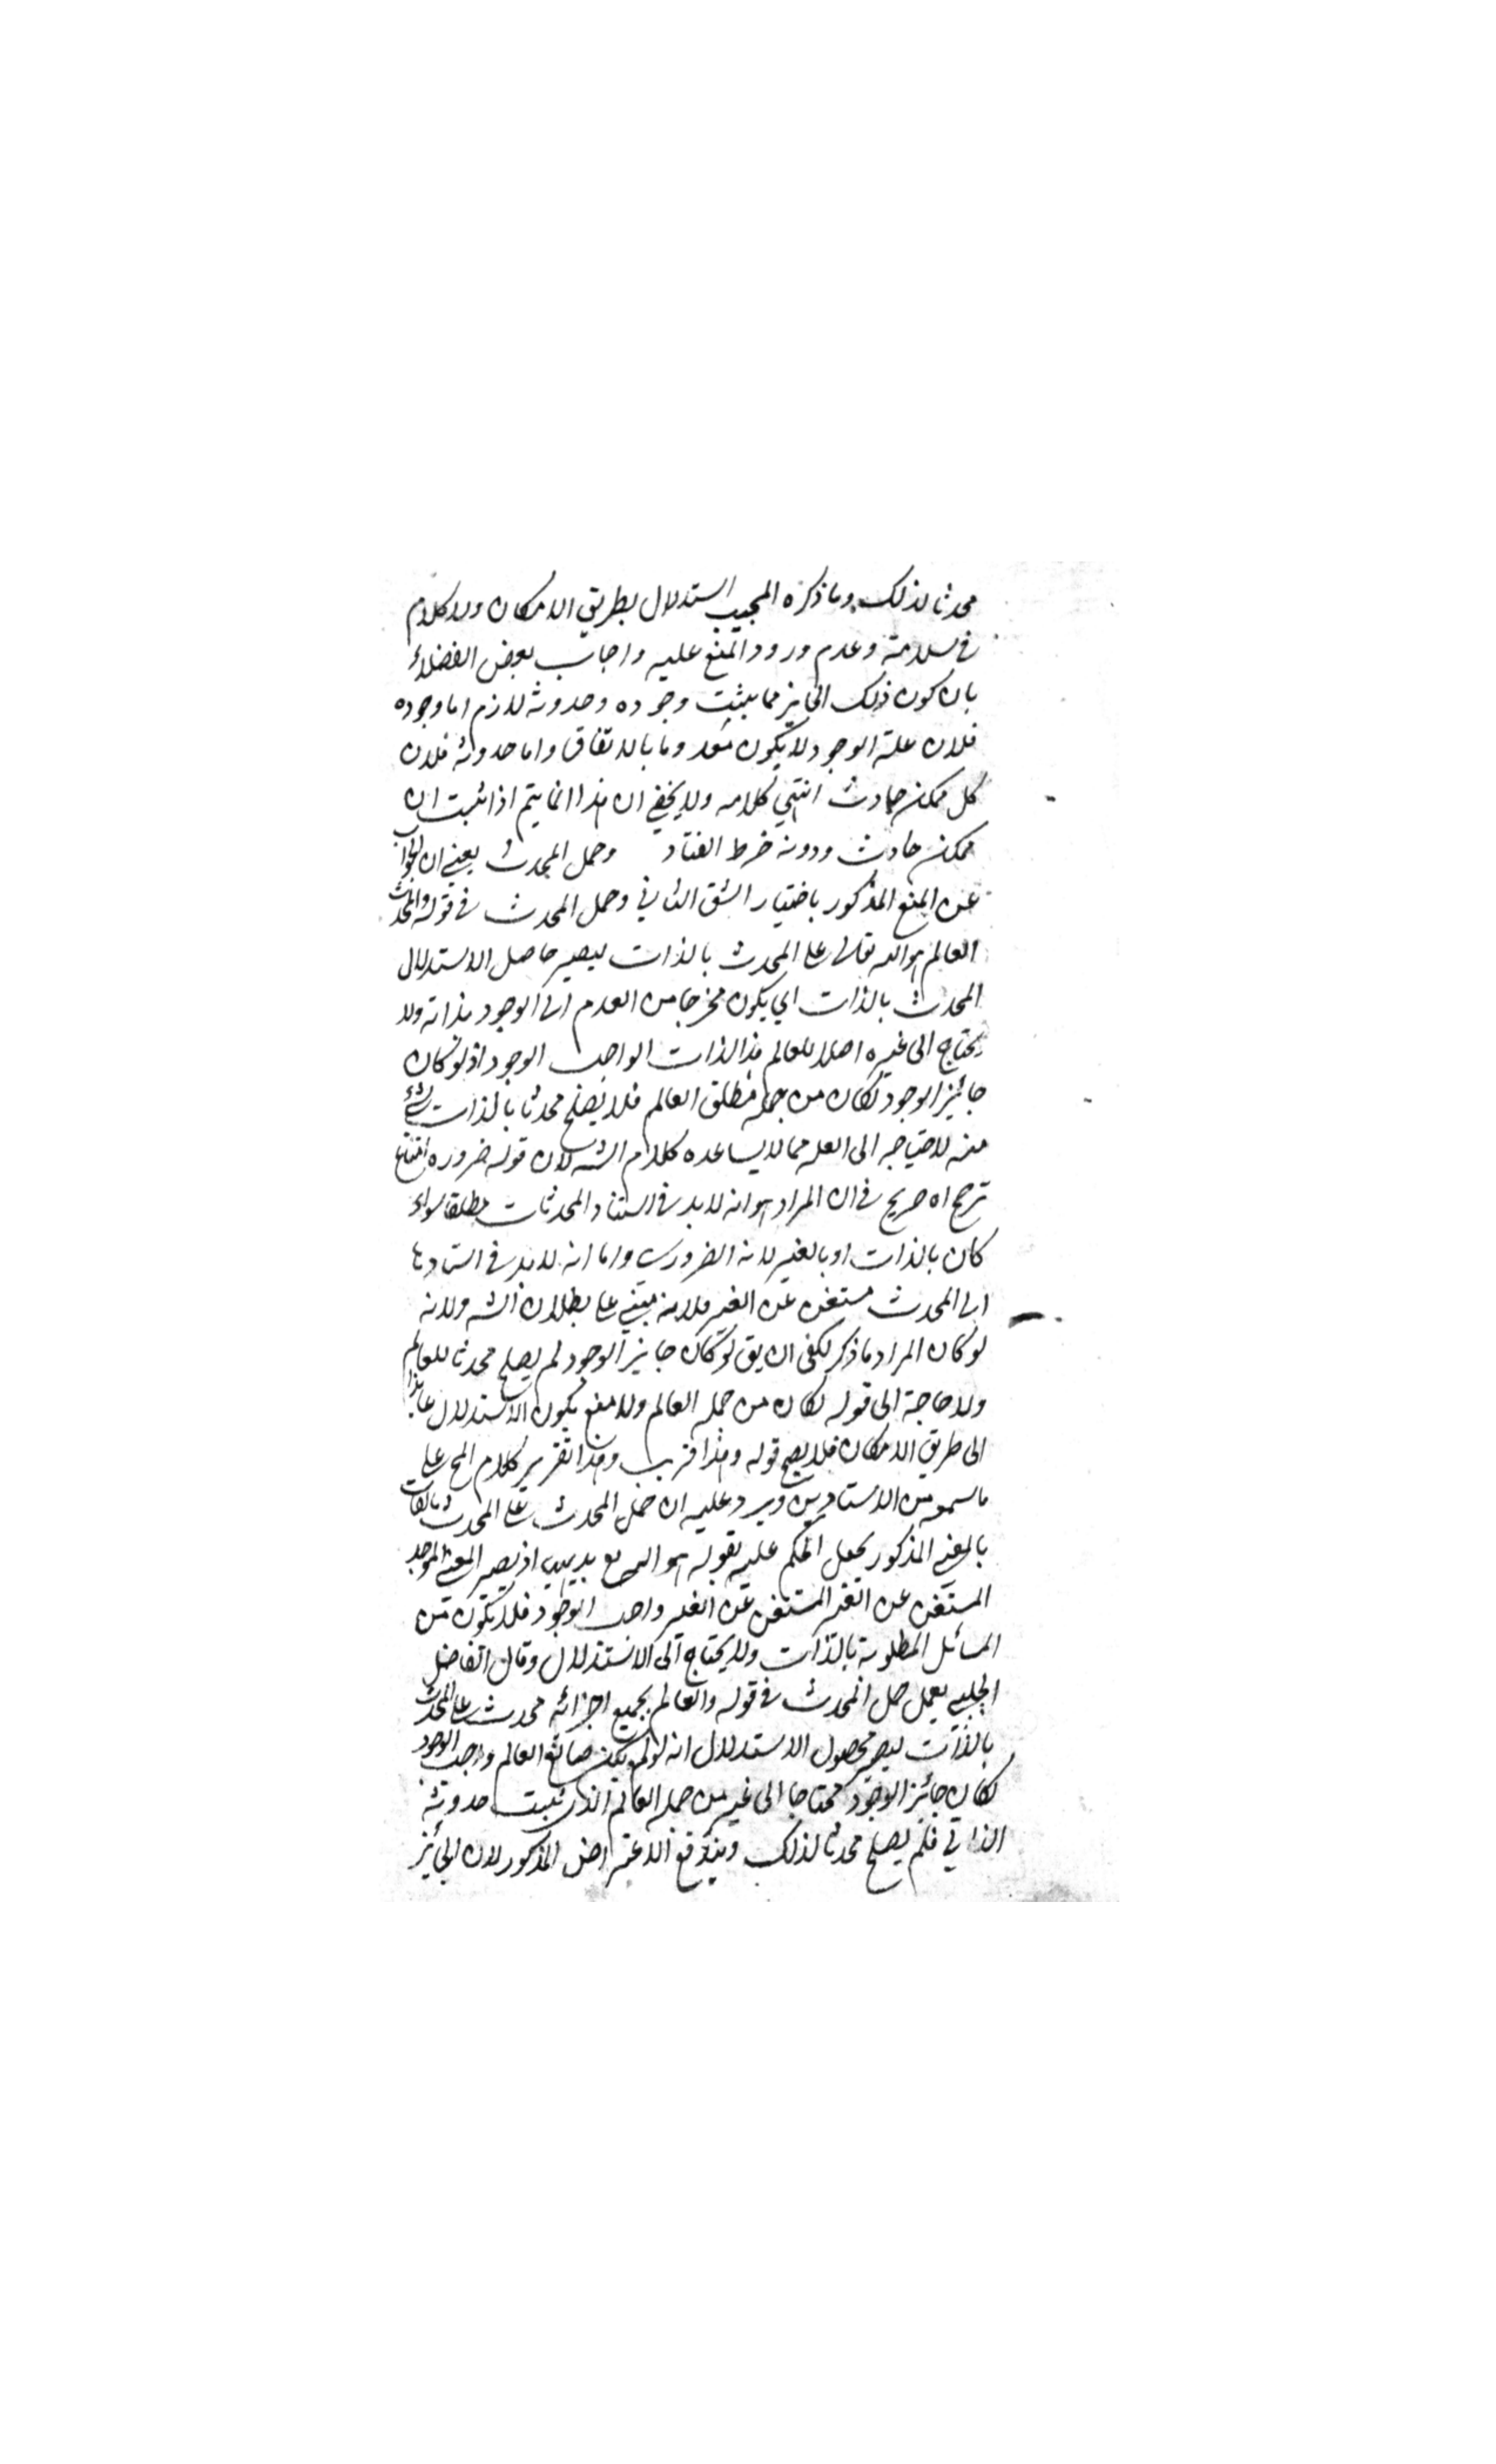 محدثا لذلك وما ذكره المجيب استدلال بطريق الامكان ولا كلام
في سلامته وعدم ورود المنع عليه واجاب بعض الفضلاء
بان كون ذلك الجايز مما يثبت وجوده وحدوثه لازم اما وجوده
فلان علة الوجود لا يكون معدوما بالاتفاق واما حدوثه فلان
كل ممكن حادث انتهى كلامه ولا يخفى ان هذا انما يتم اذا ثبت ان
ممكن حادث ودونه خرط القتاد وحمل المحدث يعني ان الجواب
عن المنع المذكور باختيار الشق الثاني وحمل المحدث في قوله والمحدث
العالم هو الله تعالى على المحدث بالذات ليصير حاصل الاستدلال
المحدث بالذات اي يكون مخرجا من العدم الى الوجود بذاته ولا
يحتاج الى غيره اصلا للعالم هذا الذات الواجب الوجود اذ لو كان
جائز الوجود لكان من جملة مطلق العالم فلا يصلح محدثا بالذات لشئ
منه لاحتياجه الى العلة مما لا يساعده كلام الشه لان قوله ضرورة امتناع
ترجح اه صريح في ان المراد هو انه لا بد في استناد المحدثات مطلقا سواء
كان بالذات او بالغير لانه الضروري واما انه لا بد في استنادها
الى المحدث مستغن عن الغير فلانه مبتني على بطلان الشه ولانه
لو كان المراد ما ذكر لكفى ان يق لو كان جايز الوجود لم يصلح محدثا للعالم
ولا حاجة الى قوله لكان من جملة العالم ولا مفع يكون الاستدلال على هذا
الى طريق الامكان فلا يصح قوله وهذا قريب وهذا تقرير كلام المح على
ما سمعه من الاستادين ويرد عليه ان حمل المحدث على المحدث بالذات
بالمعنى المذكور يجعل الحكم عليه بقوله هو الله تع بديهي اذ يصير المعنى الموجد
المستغن عن الغير المستغن عن الغير واجب الوجود فلا يكون من
المسائل المطلوبة بالذات ولا يحتاج الى الاستدلال وقال الفاضل
الجلبي يعمل حمل المحدث في قوله والعالم بجميع اجزائه محدث على المحدث
بالذات ليصير محصول الاستدلال انه لو لم يكن صانع العالم واجب الوجود
لكان جائز الوجود محتاجا الى غير من جملة العالم الذي ثبت حدوثه
الذاتي فلم يصلح محدثا لذلك ويندفع الاعتراض المذكور لان الجائز